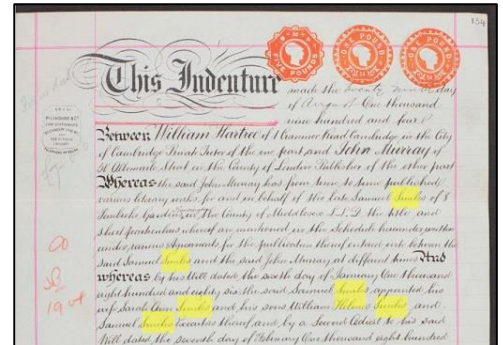 134
This Indenture
made the twenty ninth day
of August One thousand
nine hundred and four
Between William Hartree of 1 Cranmer Road Cambridge in the City
of Cambridge Private Tutor of the one part and John Murray of
50 Albemarle Street in the County of London Publisher of the other part
Whereas the said John Murray has from time to time published
various literary works for and on behalf of the late Samuel Smiles of 8
Pembroke Gardens in the County of Middlesex L.L.D. the title and
short particulars whereof are mentioned in the Schedule hereunder written
under various Agreements for the publication thereof entered into between the
said Samuel Smiles and the said John Murray at different times And
whereas by his Will dated the sixth day of January One thousand
eight hundred and eighty six the said Samuel Smiles appointed his
wife Sarah Ann Smiles and his sons William Holmes Smiles and
Samuel Smiles Executors thereof and by a Second Codicil to his said
Will dated the seventh day of February One thousand eight hundred
FIVE POUNDS
ONE POUND
ONE POUND